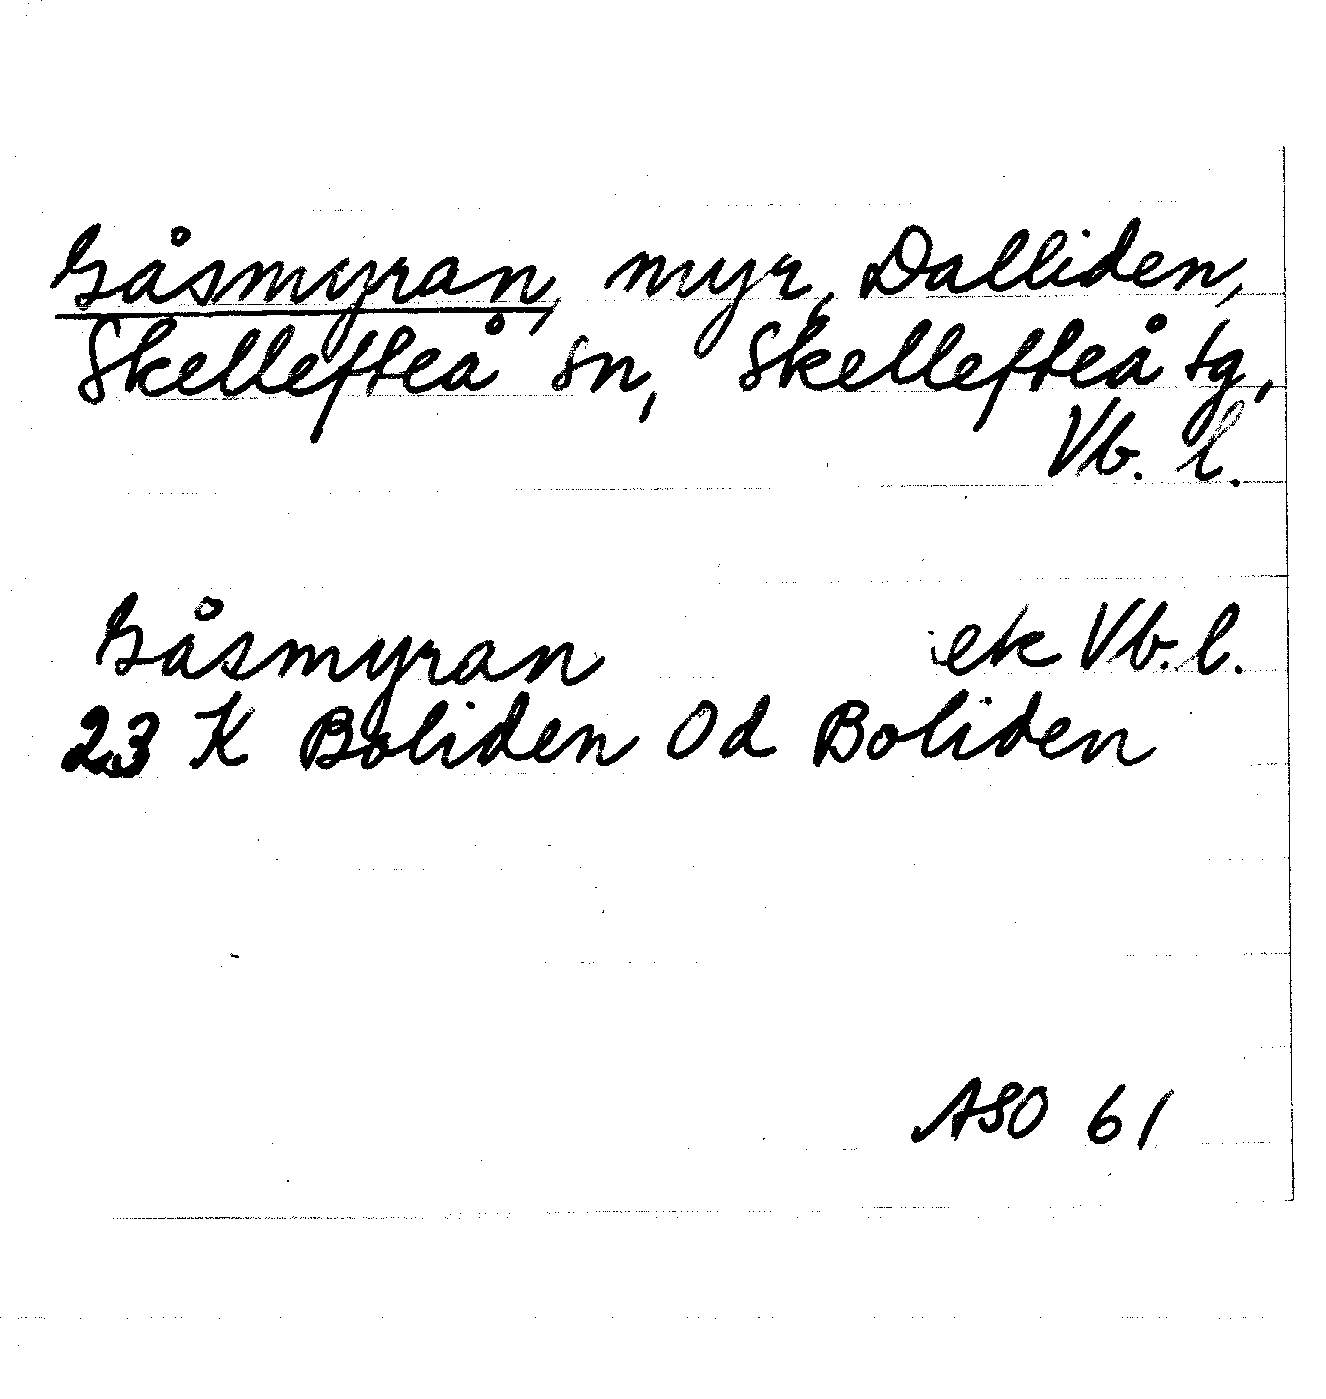 Gåsmyran, myr, Dalliden,
Skellefteå sn, Skellefteå tg,
Vb. l.
Gåsmyran ek Vb. l.
23 K Boliden Od Boliden
ASO 61